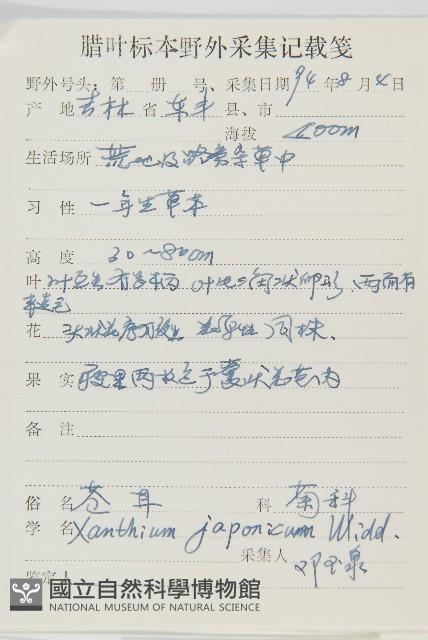 腊叶标本野外采集记载笺
野外号头：第 册 号、采集日期94年8月4日
产 地吉林省东丰县、市
海拔 400m
生活场所 荒地及路旁杂草中
习 性 一年生草本
高 度 30～80cm
叶 叶互生 有长柄 叶片三角状卵形、两面有
糙毛
花 头状花序 同株、
果 实 瘦果两枚 于囊状总苞内
备 注
俗 名 苍耳 科 菊科
学 名 Xanthium japonicum Widd.
采集人 邓玉泉
鉴定人
國立自然科學博物館
NATIONAL MUSEUM OF NATURAL SCIENCE